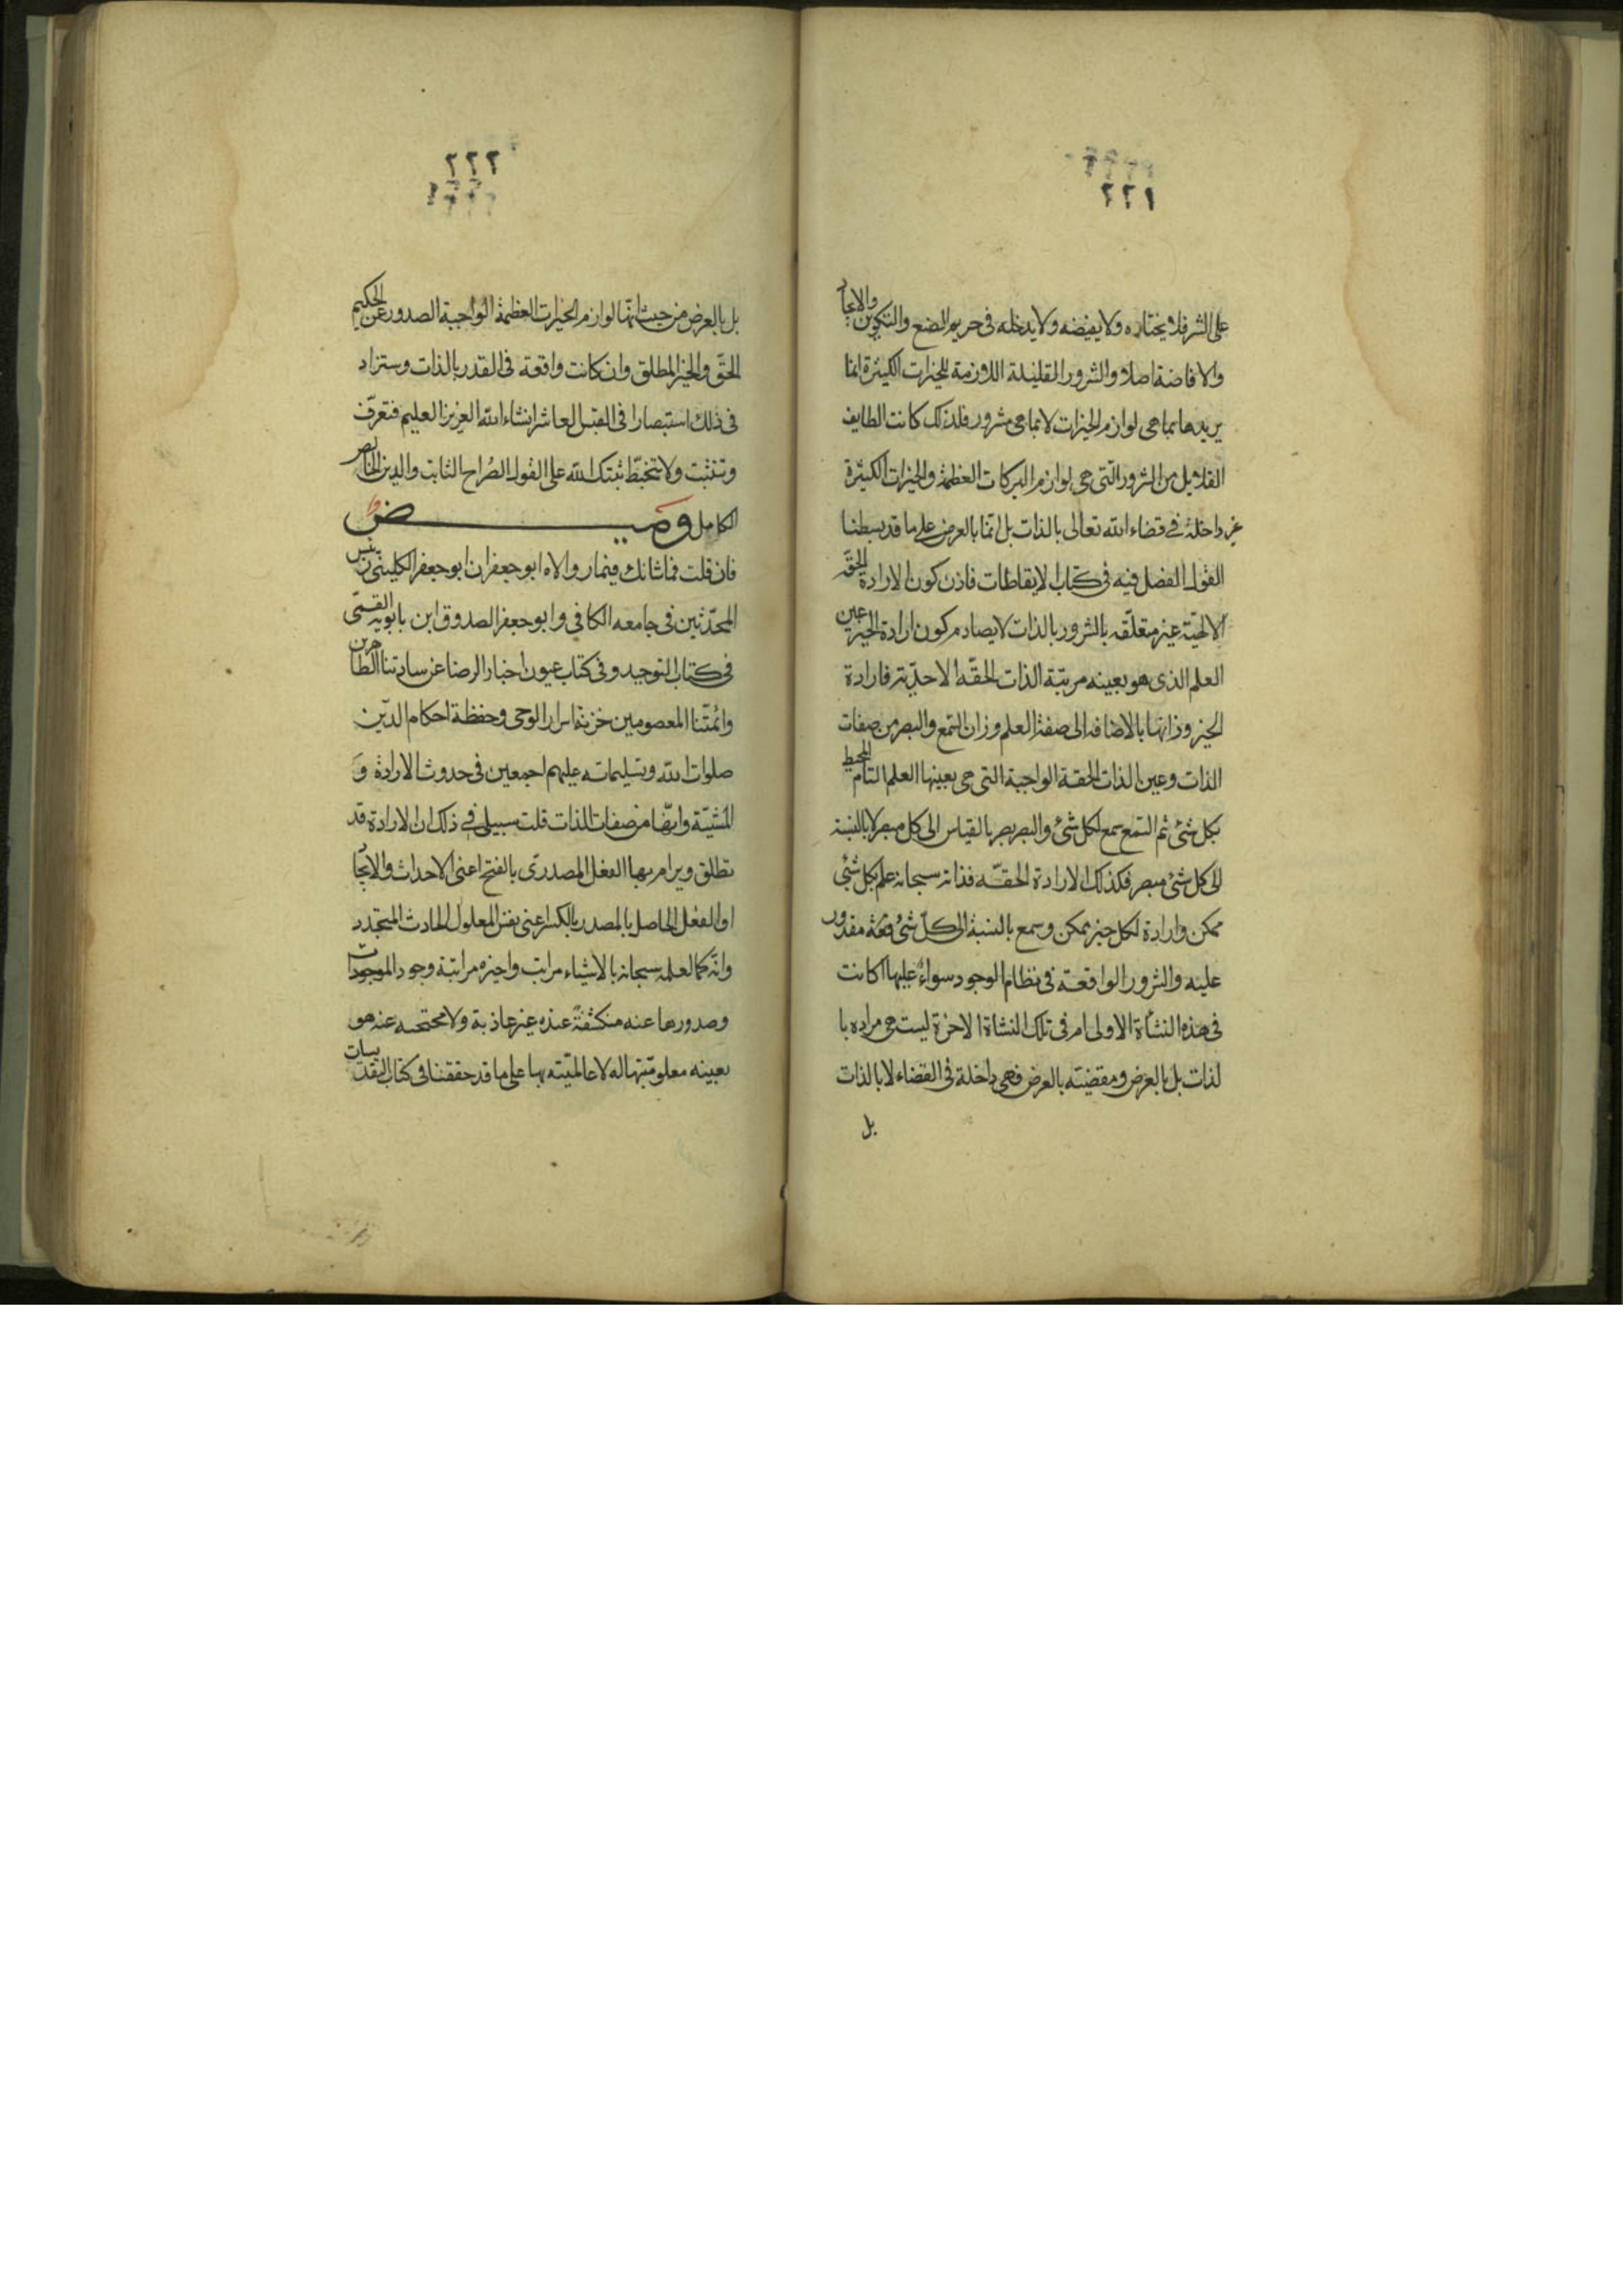 ٢٢١
على الشر فلا يختاره ولا يفيضه ولا يدخله فى حريم الصنع والتكوين والايجاد
والافاضة اصلا والشرور القليلة اللازمة للخيرات الكثيرة انما
يريدها بما هى لوازم الخيرات لا بما هى شرور فلذلك كانت الطايف
القلايل من الشرور التى هى لوازم البركات العظيمة والخيرات الكثيرة
غير داخلة فى قضاء الله تعالى بالذات بل انما بالعرض على ما قد بسطنا
القول الفصل فيه فى كتاب الايقاظات فاذن كون الارادة الحقة
الالهية غير متعلقه بالشرور بالذات لا يصادم كون ارادة الخير عين
العلم الذى هو بعينه مرتبة الذات الحقه الاحدية فارادة
الخير وزانها بالاضافه الى صفة العلم وزان السمع والبصر من صفات
الذات وعين الذات الحقة الواجبة التى هى بعينها العلم التام المحيط
بكل شئ ثم السمع سمع لكل شئ والبصر بصر بالقياس الى كل مبصر لا بالنسبة
الى كل شئ مبصر فكذلك الارادة الحقه فذاته سبحانه علم بكل شئ
ممكن وارادة لكل خير ممكن وسمع بالنسبة الى كل شئ وقدرة مقدور
عليه والشرور الواقعة فى نظام الوجود سواء عليها اكانت
فى هذه النشأة الاولى ام فى تلك النشاة الاخرة ليست هى مراده با
لذات بل بالعرض ومقضيته بالعرض فهى داخلة فى القضاء لا بالذات
بل
٢٢٢
بل بالعرض من حيث انها لوازم الخيرات العظيمة الواجبة الصدور عن الحكيم
الحق والخير المطلق وان كانت واقعة فى القدر بالذات وستزاد
فى ذلك استبصارا فى القبس العاشر انشاء الله العزيز العليم فتعرف
وتثبت ولا تتخبط ثبتك الله على القول الصراح الثابت والدين الخالص
الكامل وميض
فان قلت فما شانك فيما رواه ابو جعفران ابو جعفر الكلينى رئيس
المحدثين فى جامعه الكافى وابو جعفر الصدوق ابن بابويه القمى
فى كتاب التوحيد وفى كتاب عيون اخبار الرضا عن سادتنا الطاهرين
وائمتنا المعصومين خزنة اسرار الوحى وحفظة احكام الدين
صلوات الله وتسليماته عليهم اجمعين فى حدوث الارادة و
المشية وانها من صفات الذات قلت سبيلى فى ذلك ان الارادة قد
تطلق ويرام بها الفعل المصدرى بالفتح اعنى الاحداث والايجا
او الفعل الحاصل بالمصدر بالكسر اعنى نفس المعلول الحادث المتجدد
وانه كما لعلمه سبحانه بالاشياء مراتب واخيره مراتبة وجود الموجودات
وصدورها عنه منكشفة عنده غير عاذبة ولا محتجبه عنه هو
بعينه معلوميتها له لا عالميته بها على ما قد حققنا فى كتاب التقديسات